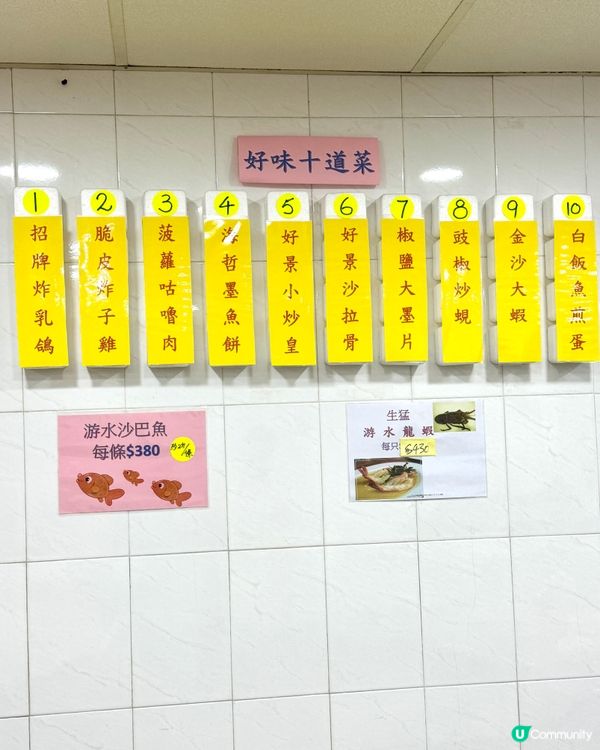 好味十道菜
1
招牌炸乳鴿
2
脆皮炸子雞
3
菠蘿咕嚕肉
4
海哲墨魚餅
5
好景小炒皇
6
好景沙拉骨
7
椒鹽大墨片
8
豉椒炒蜆
9
金沙大蝦
10
白飯魚煎蛋
游水沙巴魚
每條$380
生猛
游水龍蝦
每只
$430
U Community